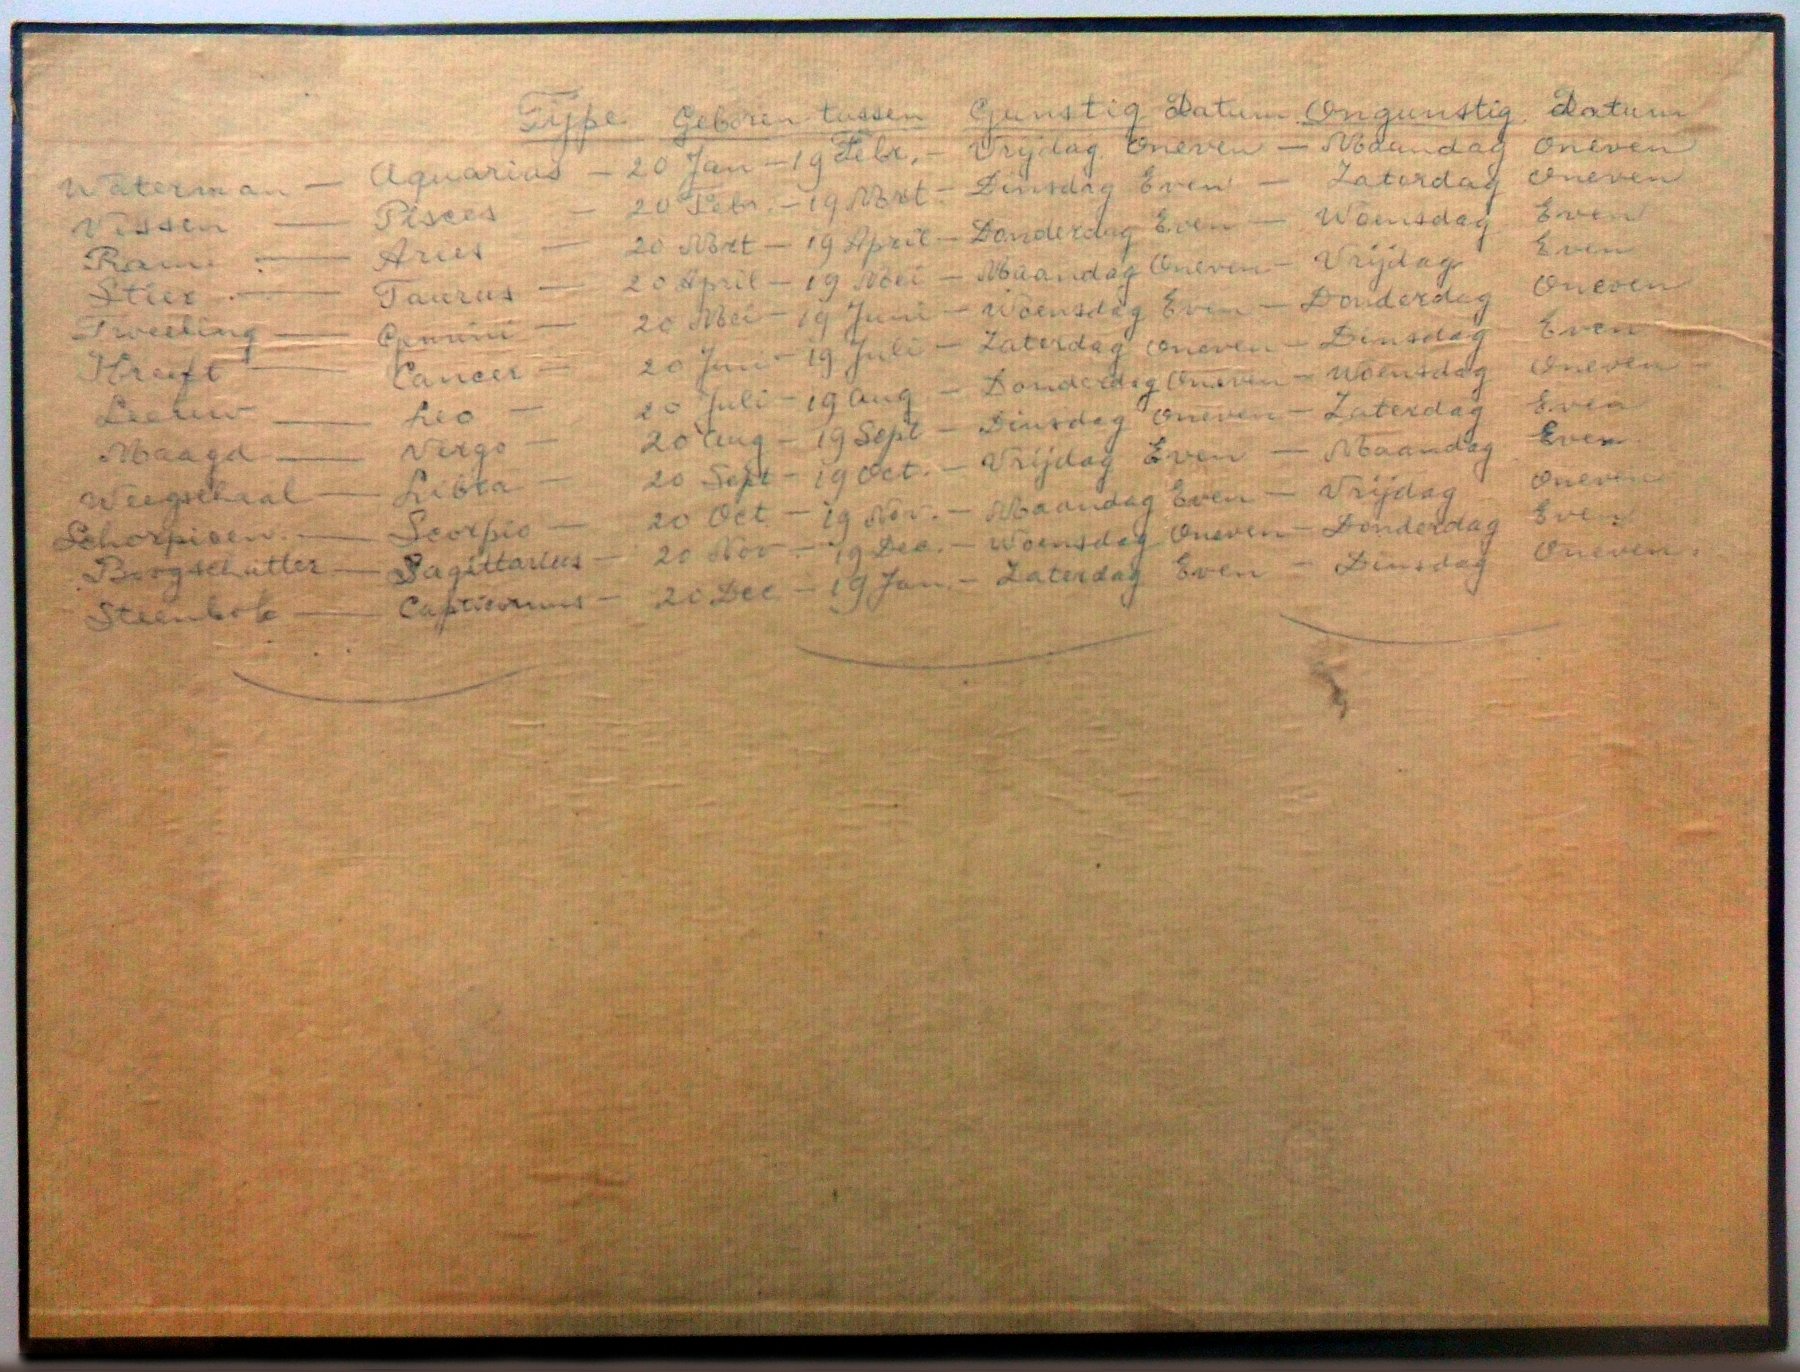 Type Geboren tussen Gunstig Datum Ongunstig Datum
Waterman — Aquarius — 20 Jan — 19 Febr. — Vrijdag Oneven — Maandag Oneven
Vissen — Pisces — 20 Febr. — 19 Mrt. — Dinsdag Even — Zaterdag Oneven
Ram — Aries — 20 Mrt — 19 April — Donderdag Even — Woensdag Even
Stier — Taurus — 20 April — 19 Mei — Maandag Oneven — Vrijdag Even
Tweeling — Gemini — 20 Mei — 19 Juni — Woensdag Even — Donderdag Oneven
Kreeft — Cancer — 20 Juni — 19 Juli — Zaterdag Oneven — Dinsdag Even
Leeuw — Leo — 20 Juli — 19 Aug — Donderdag Oneven — Woensdag Oneven
Maagd — Virgo — 20 Aug — 19 Sept — Dinsdag Oneven — Zaterdag Even
Weegschaal — Libra — 20 Sept — 19 Oct. — Vrijdag Even — Maandag Even
Schorpioen — Scorpio — 20 Oct — 19 Nov. — Maandag Even — Vrijdag Oneven
Boogschutter — Sagittarius — 20 Nov — 19 Dec. — Woensdag Oneven — Donderdag Even
Steenbok — Capricornus — 20 Dec — 19 Jan. — Zaterdag Even — Dinsdag Oneven.